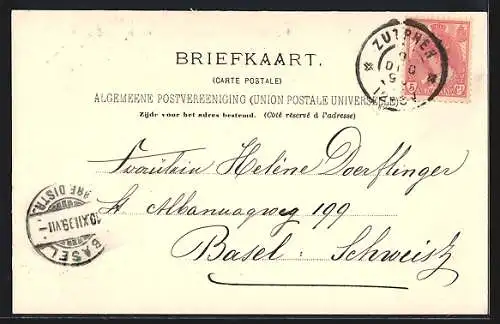 BRIEFKAART.
(CARTE POSTALE)
ALGEMEENE POSTVEREENIGING (UNION POSTALE UNIVERSELLE)
Zijde voor het adres bestemd. (Côté réservé à l'adresse)
ZUTPHEN
Fräulein Helène Doerflinger
St Albanvagweg 199
Basel: Schweitz
BASEL
10.XII.
BRF. DISTR.
5